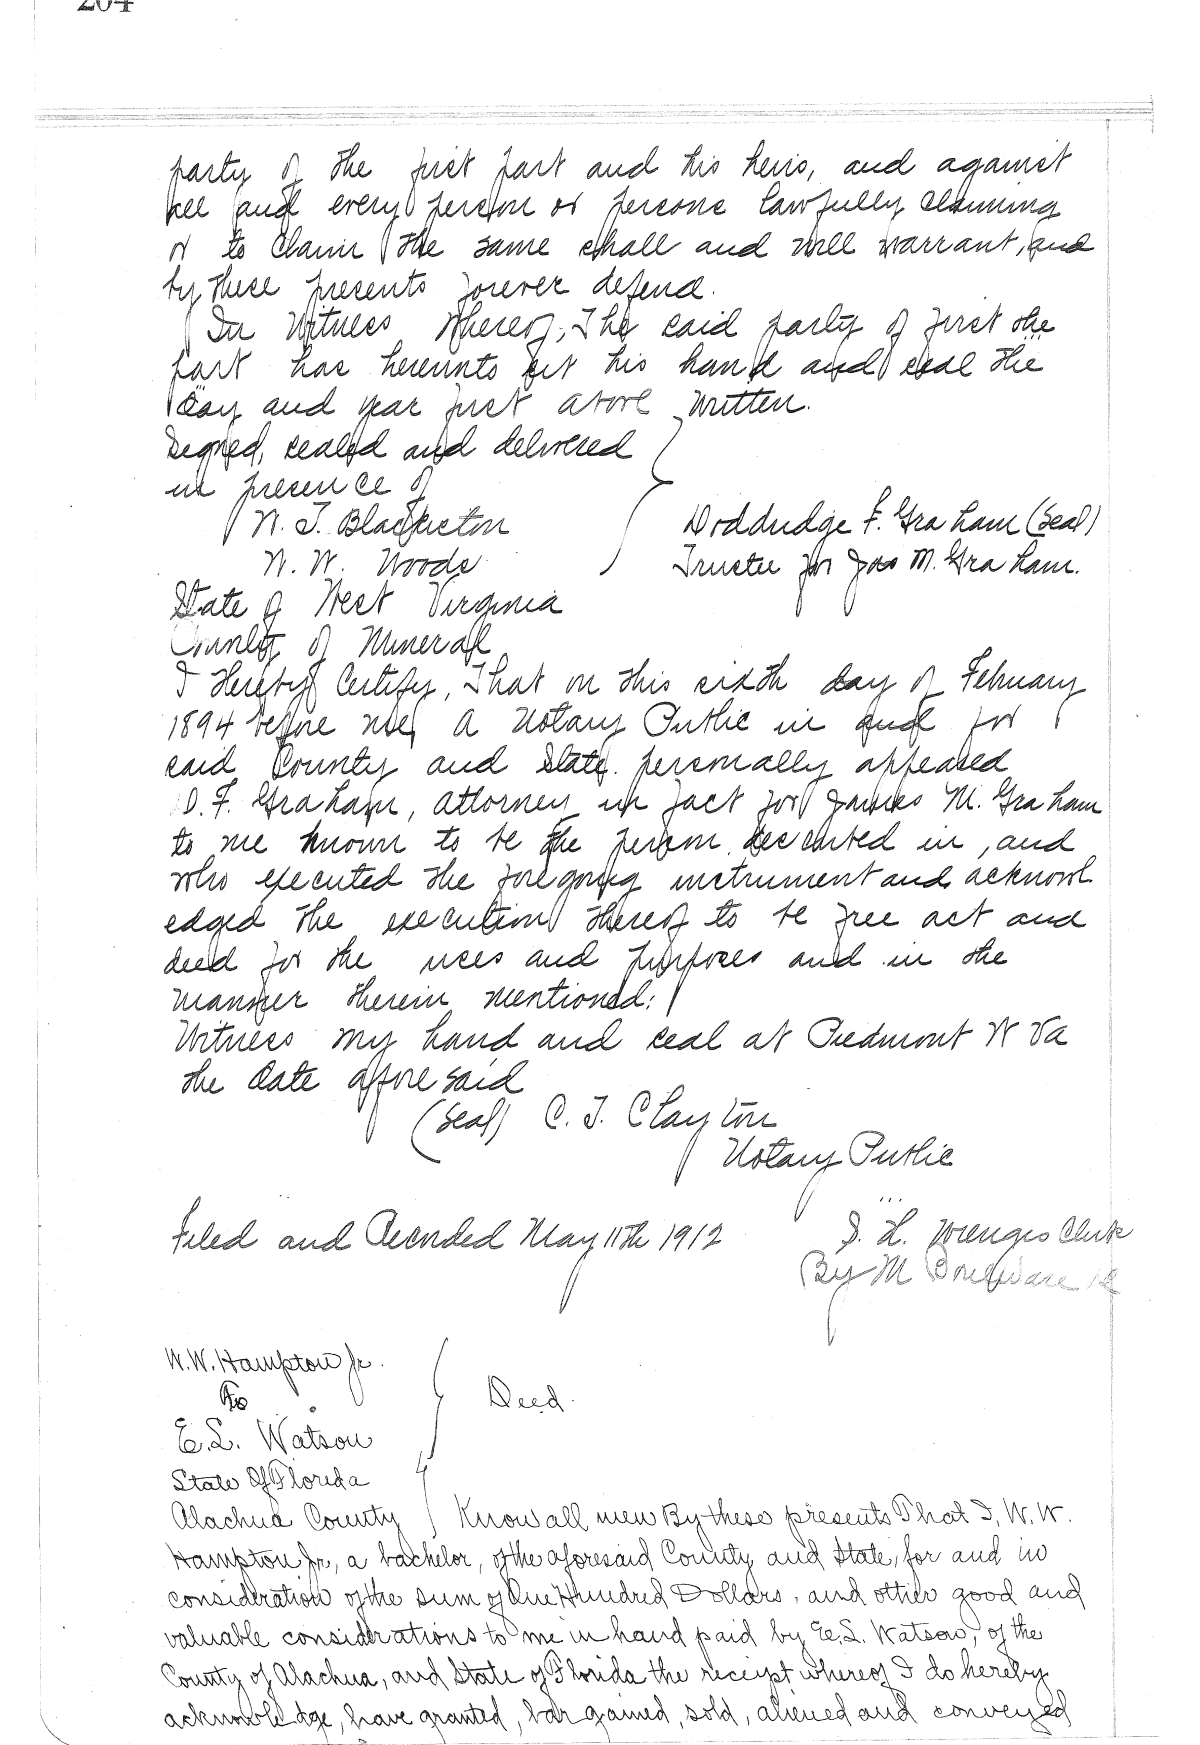 204
party of the first part and his heirs, and against
all and every person or persons lawfully claiming
or to claim the same shall and will warrant, and
by these presents forever defend.
In Witness Whereof, The said party of first the
part has hereunto set his hand and seal the
day and year first above written.
Signed, sealed and delivered
in presence of
W. T. Blackiston
W. W. Woods
Doddridge F. Graham (Seal)
Trustee for Jas M. Graham.
State of West Virginia
County of Mineral
I Hereby Certify, That on this sixth day of February
1894 before me, A Notary Public in and for
said County and State personally appeared
D. F. Graham, attorney in fact for James M. Graham
to me known to be the person described in, and
who executed the foregoing instrument and acknowl
edged the execution thereof to be free act and
deed for the uses and purposes and in the
manner therein mentioned:
Witness my hand and seal at Piedmont W Va
the date aforesaid
(Seal) C. T. Clayton
Notary Public
Filed and Recorded May 11th 1912
S. H. Wienges Clerk
By M
W.W. Hampton Jr.
To
E.L. Watson
Deed.
State Of Florida
Alachua County Know all men By these presents That I, W.W.
Hampton Jr, a bachelor, of the aforesaid County and State, for and in
consideration of the sum of One Hundred Dollars, and other good and
valuable considerations to me in hand paid by E.L. Watson, of the
County of Alachua, and State of Florida the receipt whereof I do hereby
acknowledge, have granted, bargained, sold, aliened and conveyed